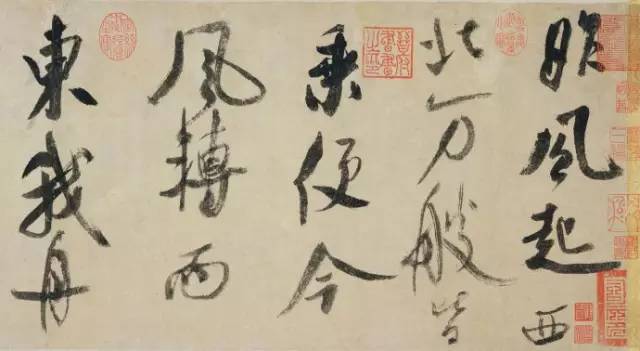 昨風起西
北万艘皆
乘便今
風轉而
東我舟